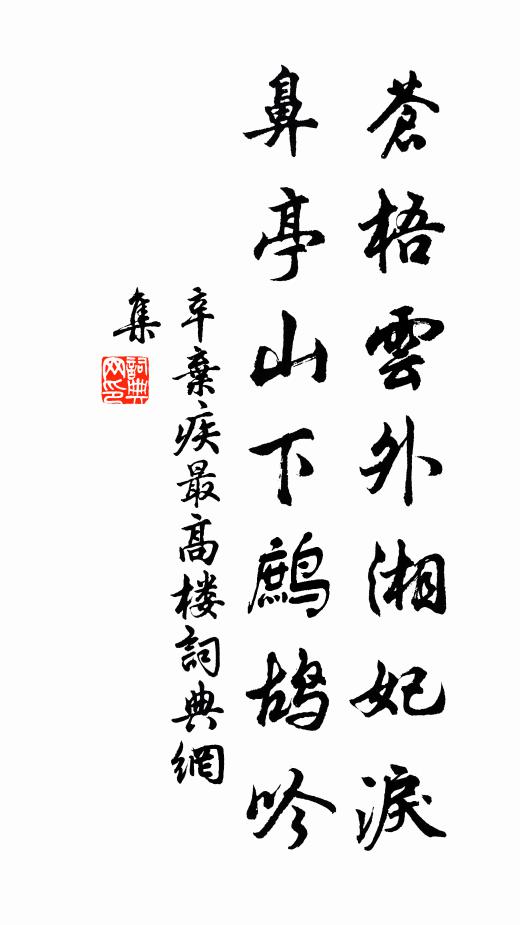 蒼梧雲外湘妃淚
鼻亭山下鷓鴣吟
辛棄疾最高楼詞典網
集
詞典网印